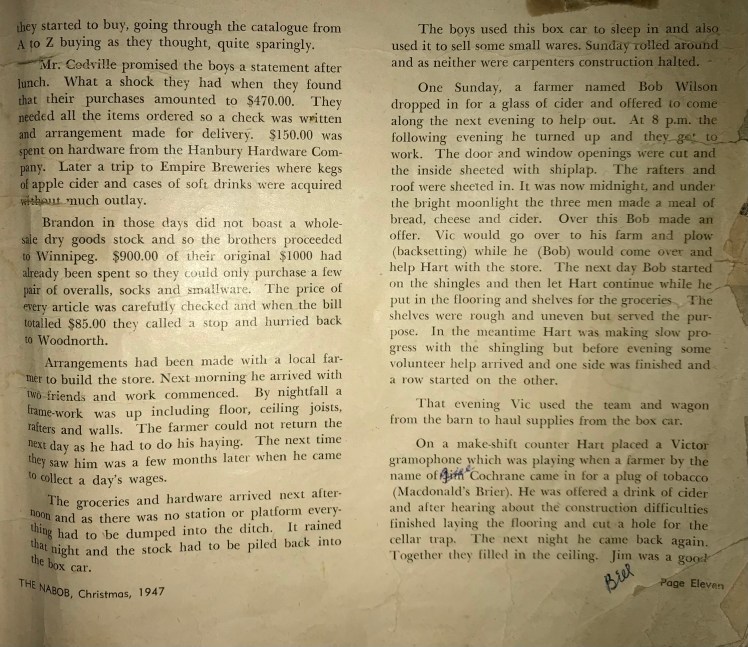 they started to buy, going through the catalogue from
A to Z buying as they thought, quite sparingly.
Mr. Codville promised the boys a statement after
lunch. What a shock they had when they found
that their purchases amounted to $470.00. They
needed all the items ordered so a check was written
and arrangement made for delivery. $150.00 was
spent on hardware from the Hanbury Hardware Com-
pany. Later a trip to Empire Breweries where kegs
of apple cider and cases of soft drinks were acquired
without much outlay.
Brandon in those days did not boast a whole-
sale dry goods stock and so the brothers proceeded
to Winnipeg. $900.00 of their original $1000 had
already been spent so they could only purchase a few
pair of overalls, socks and smallware. The price of
every article was carefully checked and when the bill
totalled $85.00 they called a stop and hurried back
to Woodnorth.
Arrangements had been made with a local far-
mer to build the store. Next morning he arrived with
two friends and work commenced. By nightfall a
frame-work was up including floor, ceiling joists,
rafters and walls. The farmer could not return the
next day as he had to do his haying. The next time
they saw him was a few months later when he came
to collect a day's wages.
The groceries and hardware arrived next after-
noon and as there was no station or platform every-
thing had to be dumped into the ditch. It rained
that night and the stock had to be piled back into
the box car.
THE NABOB, Christmas, 1947
The boys used this box car to sleep in and also
used it to sell some small wares. Sunday rolled around
and as neither were carpenters construction halted.
One Sunday, a farmer named Bob Wilson
dropped in for a glass of cider and offered to come
along the next evening to help out. At 8 p.m. the
following evening he turned up and they get to
work. The door and window openings were cut and
the inside sheeted with shiplap. The rafters and
roof were sheeted in. It was now midnight, and under
the bright moonlight the three men made a meal of
bread, cheese and cider. Over this Bob made an
offer. Vic would go over to his farm and plow
(backsetting) while he (Bob) would come over and
help Hart with the store. The next day Bob started
on the shingles and then let Hart continue while he
put in the flooring and shelves for the groceries. The
shelves were rough and uneven but served the pur-
pose. In the meantime Hart was making slow pro-
gress with the shingling but before evening some
volunteer help arrived and one side was finished and
a row started on the other.
That evening Vic used the team and wagon
from the barn to haul supplies from the box car.
On a make-shift counter Hart placed a Victor
gramophone which was playing when a farmer by the
name of Cochrane came in for a plug of tobacco
(Macdonald's Brier). He was offered a drink of cider
and after hearing about the construction difficulties
finished laying the flooring and cut a hole for the
cellar trap. The next night he came back again.
Together they filled in the ceiling. Jim was a good
Page Eleven